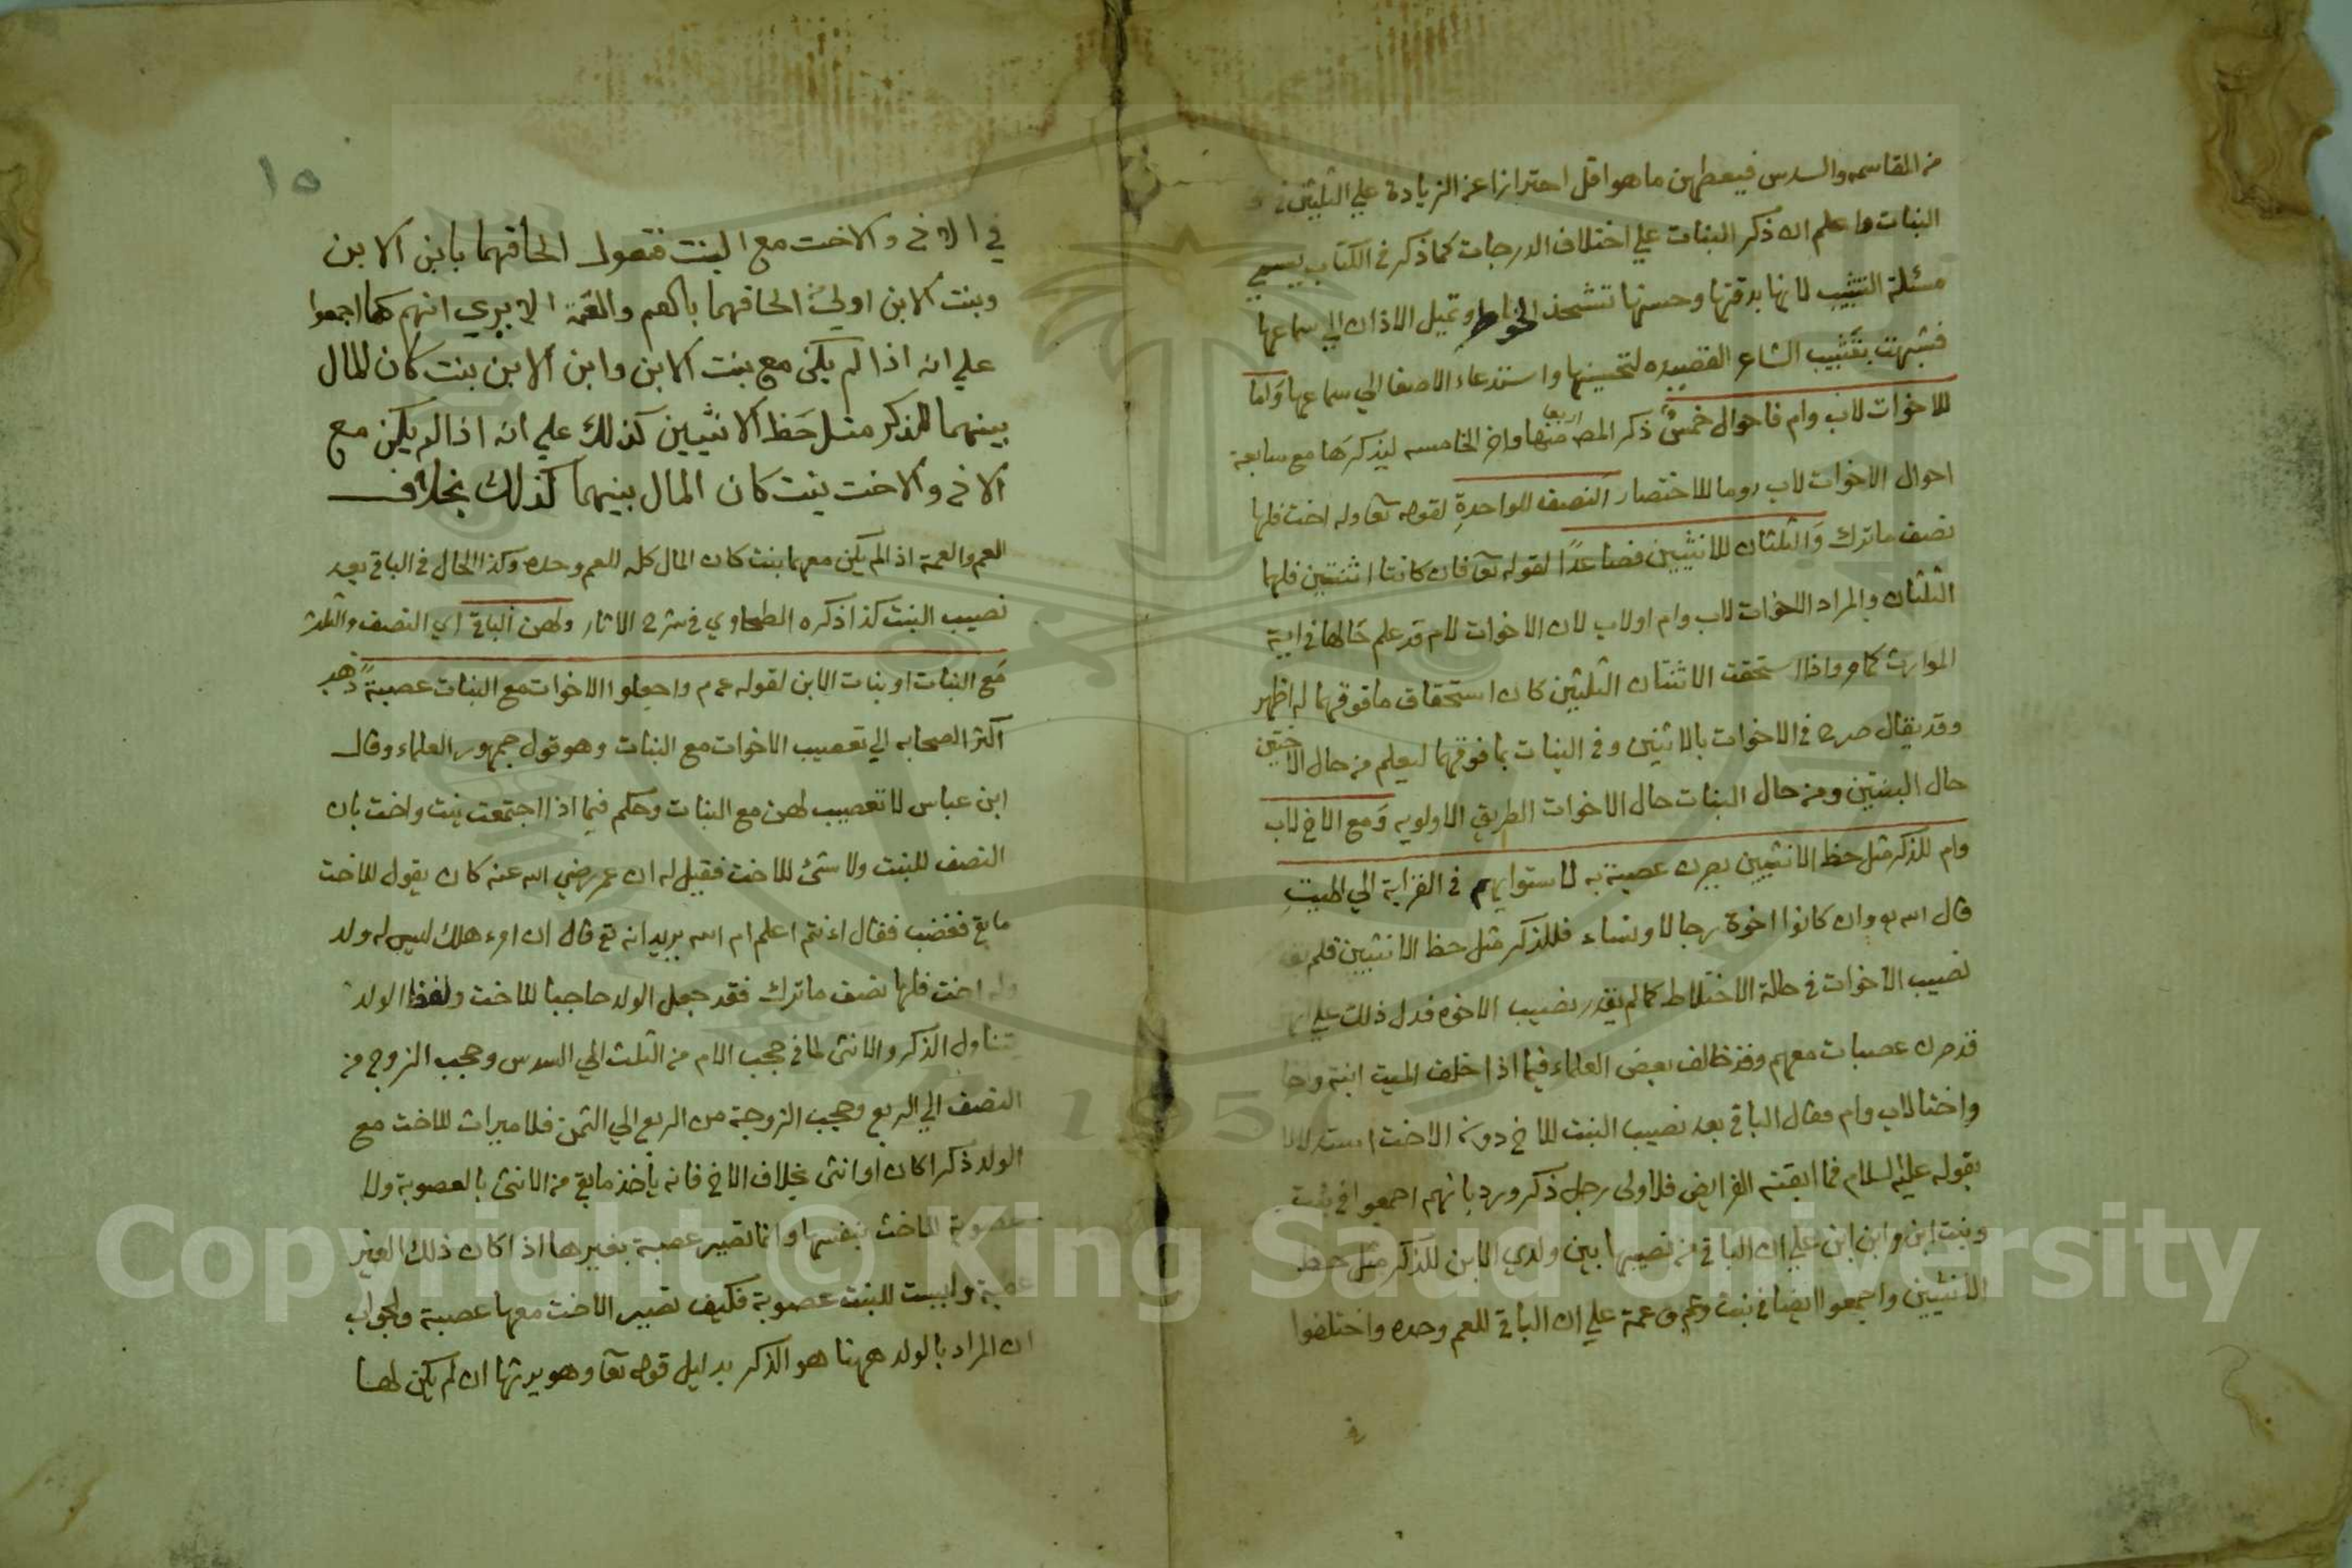 من المقاسمه والسدس فيعطهن ما هو اقل احترازا عن الزيادة علي الثلثين في
البنات واعلم ان ذكر البنات علي اختلاف الدرجات كما ذكر في الكتاب يسمي
مسئلة التشبيب لانها بدقتها وحسنها تشحذ الخواطر وتميل الاذان الي سماعها
فشبهت بتشبيب الشاعر القصيده لتحسينها واستدعاء الاصغا الي سماعها وَاما
للاخوات لاب وام فاحوال خمسٌ ذكر المص اربعا منها واخر الخامسه ليذكرها مع سابعة
احوال الاخوات لاب روما للاختصار النصف للواحدةِ لقوله تعا وله اخت فلها
نصف ما ترك وَالثلثان للانثيين فصاعدًا لقوله تع فان كانتا اثنتين فلهما
الثلثان والمراد الاخوات لاب وام اولاب لان الاخوات لام قد علم حالها في اية
المواريث كما مر واذا استحقت الاثنتان الثلثين كان استحقاق ما فوقهما له اظهر
وقد يقال صرح في الاخوات بالاثنين وفي البنات بما فوقهما ليعلم من حال الاختين
حال البنتين ومن حال البنات حال الاخوات الطريق الاولويه وَمع الاخ لاب
وام للذكر مثل حظ الانثيين يصرن عصبة به لاستوايهم في القرابة الي الميتِ
قال الله تع وان كانوا اخوة رجالا ونساء فللذكر مثل حظ الانثيين فلم
نصيب الاخوات في حالة الاختلاط كما لم يقدر نصيب الاخوه فدل ذلك علي
قد صرن عصبات معهم وقد خالف بعض العلماء فيما اذا خلف الميت ابنة واخا
واختا لاب وام فقال الباقي بعد نصيب البنت للاخ دون الاخت استدلالا
بقوله عليه السلام فما ابقته الفرايض فلاولى رجل ذكر ورد بانهم اجمعوا في بنت
وبنت ابن وابن ابن علي ان الباقي من نصيبها بين ولدي الابن للذكر مثل حظ
الانثيين واجمعوا ايضا في بنت وعم وعمة علي ان الباقي للعم وحده واختلفوا
في
١٥
في الاخ والاخت مع البنت فنقول الحاقهما بابن الابن
وبنت الابن اولي الحاقهما بالعم والعمة الا يري انهم كما اجمعوا
علي انه اذا لم يكن مع بنت الابن وابن الابن بنت كان المال
بينهما للذكر مثل حَظ الانثيين كذلك علي انه اذا لم يكن مع
الاخ والاخت بنت كان المال بينهما كذلك بخلاف
العم والعمة اذا لم يكن معهما بنت كان المال كله للعم وحده وكذا الحال في الباقي بعد
نصيب البنت كذا ذكره الطحاوي في شرح الاثار ولهن الباقي اي النصف والثلث
مَع البنات او بنات الابن لقوله عم واجعلوا الاخوات مع البنات عصبةً ذهب
اكثر الصحابه الي تعصيب الاخوات مع البنات وهو قول جمهور العلماء وقال
ابن عباس لا تعصيب لهن مع البنات وحكم فيما اذا اجتمعت بنت واخت بان
النصف للبنت ولا شئ للاخت فقيل له ان عمر رضي الله عنه كان يقول للاخت
ما بقي فغضب فقال ءانتم اعلم ام الله يريد انه تع قال ان امرء هلك ليس له ولد
وله اخت فلها نصف ما ترك فقد جعل الولد حاجبا للاخت ولفظ الولد
تتناول الذكر والانثى لما في حجب الام من الثلث الي السدس وحجب الزوج من
النصف الي الربع وحجب الزوجة من الربع الي الثمن فلا ميراث للاخت مع
الولد ذكرا كان او انثى بخلاف الاخ فانه يأخذ ما بقي من الانثى بالعصوبة ولا
عصوبة للاخت بنفسها وانما تصير عصبة بغيرها اذا كان ذلك الغير
عصبة وليست للبنت عصوبة فكيف تصير الاخت معها عصبة والجواب
ان المراد بالولد ههنا هو الذكر بدليل قوله تعا وهو يرثها ان لم يكن لها
Copyright © King Saud University
1957